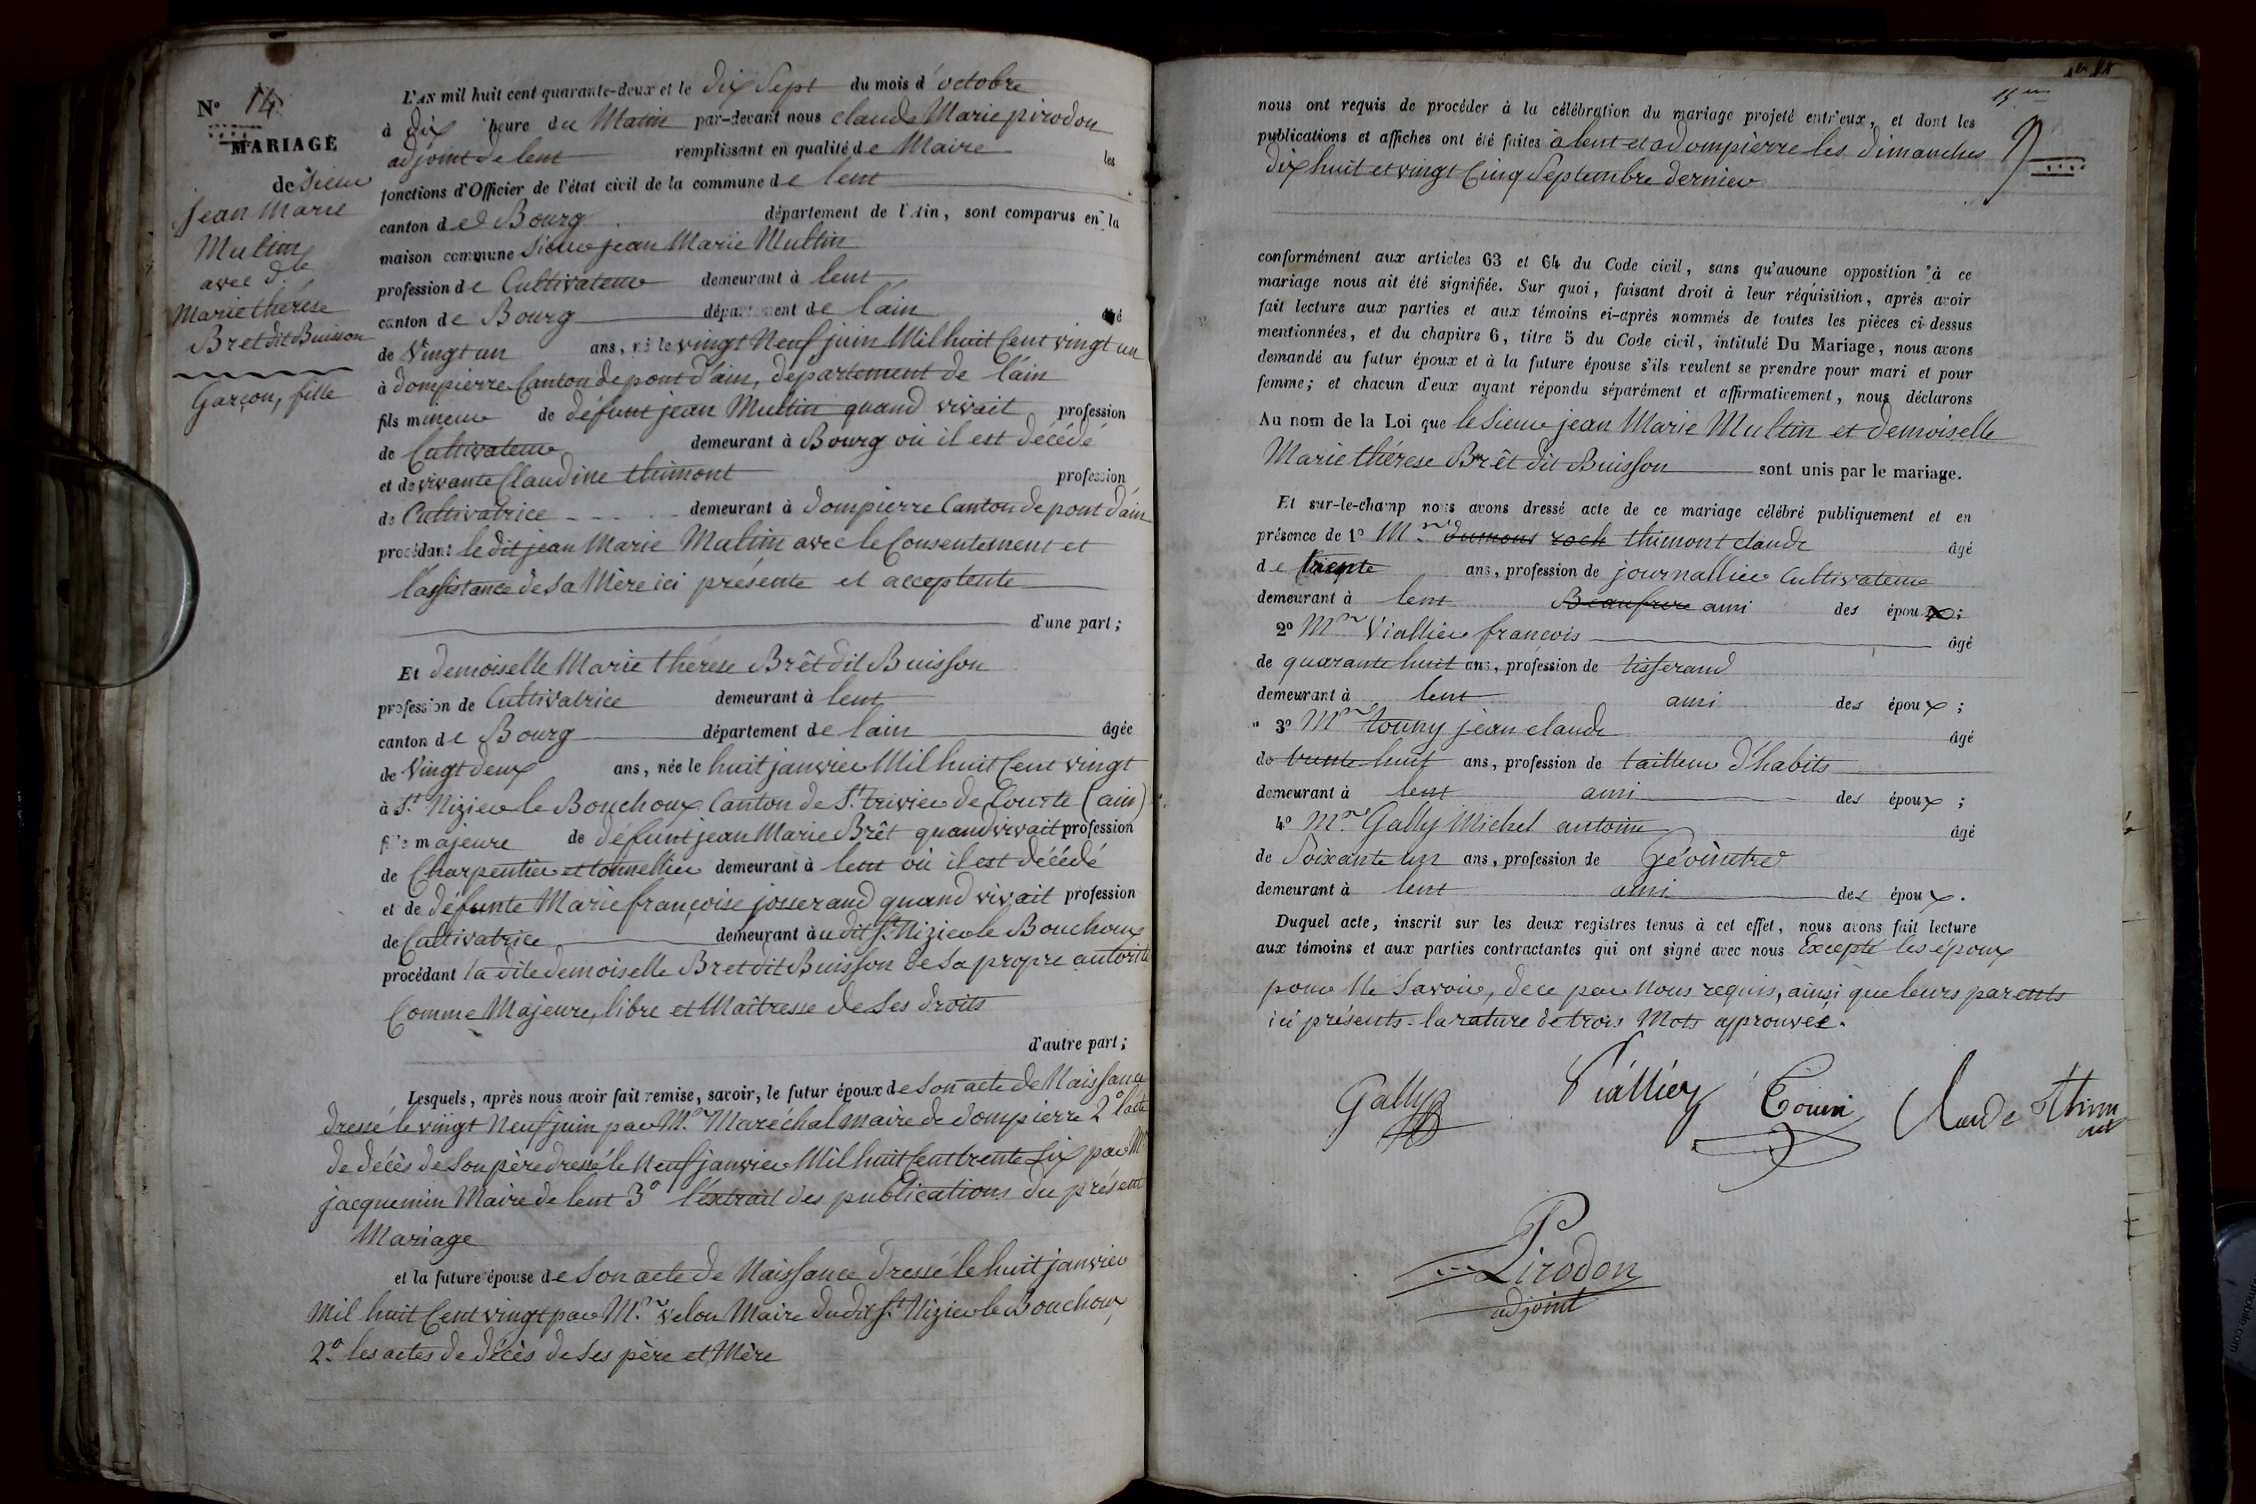 N° 14
MARIAGE
de Sieur
Jean Marie
Mulin
avec dlle
Marie thérèse
Bret dit Buisson
Garçon, fille
L'AN mil huit cent quarante-deux et le dix Sept du mois d'octobre
à dix heure du Matin par-devant nous claude Marie pirodon
adjoint de lent remplissant en qualité de Maire les
fonctions d'Officier de l'état civil de la commune de lent
canton de Bourg département de l'Ain, sont comparus en la
maison commune Sieur jean Marie Multin
profession de Cultivateur demeurant à lent
canton de Bourg département de l'ain âgé
de Vingt un ans, né le vingt Neuf juin Mil huit Cent vingt un
à dompierre Canton de pont d'ain, département de l'ain
fils mineur de défunt jean Multin quand vivait profession
de Cultivateur demeurant à Bourg où il est décédé
et de vivante Claudine thimont profession
de Cultivatrice demeurant à dompierre Canton de pont d'ain
procédant le dit jean Marie Mulin avec le Consentement et
l'assistance de sa Mère ici présente et acceptente
d'une part;
Et demoiselle Marie thérèse Brêt dit Buisson
profession de Cultivatrice demeurant à lent
canton de Bourg département de lain âgée
de Vingt deux ans, née le huit janvier Mil huit Cent vingt
à St Nizier le Bouchoux Canton de St trivier de Courte (ain)
fille majeure de défunt jean Marie Brêt quand vivait profession
de Charpentier et tonnellier demeurant à lent où il est décédé
et de défunte Marie françoise josserand quand vivait profession
de Cultivatrice demeurant au dit St Nizier le Bouchoux
procédant la dite demoiselle Bret dit Buisson de sa propre autorité
Comme Majeure, libre et Maîtresse de Ses droits
d'autre part;
Lesquels, après nous avoir fait remise, savoir, le futur époux de Son acte de Naissance
dressé le vingt Neuf juin par Mr Maréchal maire de dompierre 2° l'acte
de décès de Son père dressé le Neuf janvier Mil huit Cent trente Six par Mr
jacquemin Maire de lent 3° l'extrait des publications du présent
Mariage
et la future épouse de Son acte de Naissance dressé le huit janvier
Mil huit Cent vingt par Mr velon Maire du dit St Nizier le Bouchoux
2° les actes de décès de Ses père et Mère
15me
nous ont requis de procéder à la célébration du mariage projeté entr'eux, et dont les
publications et affiches ont été faites à lent et a dompierre les dimanches
dix huit et vingt Cinq Septembre dernier
conformément aux articles 63 et 64 du Code civil, sans qu'aucune opposition à ce
mariage nous ait été signifiée. Sur quoi, faisant droit à leur réquisition, après avoir
fait lecture aux parties et aux témoins ci-après nommés de toutes les pièces ci-dessus
mentionnées, et du chapitre 6, titre 5 du Code civil, intitulé Du Mariage, nous avons
demandé au futur époux et à la future épouse s'ils veulent se prendre pour mari et pour
femme; et chacun d'eux ayant répondu séparément et affirmativement, nous déclarons
Au nom de la Loi que le Sieur jean Marie Multin et demoiselle
Marie thérèse Brêt dit Buisson sont unis par le mariage.
Et sur-le-champ nous avons dressé acte de ce mariage célébré publiquement et en
présence de 1° Mr dumont roch thimont claude âgé
de trente ans, profession de journallier Cultivateur
demeurant à lent Beaufrere ami des époux;
2° Mr Viallier francois âgé
de quarante huit ans, profession de tisserand
demeurant à lent ami des époux;
3° Mr touny jean claude âgé
de trente huit ans, profession de tailleur d'habits
demeurant à lent ami des époux;
4° Mr Gally Michel antoine âgé
de Soixante un ans, profession de Géomètre
demeurant à lent ami des époux.
Duquel acte, inscrit sur les deux registres tenus à cet effet, nous avons fait lecture
aux témoins et aux parties contractantes qui ont signé avec nous Excepté les époux
pour Ne Savoir, de ce par Nous requis, ainsi que leurs parents
ici présents. la rature de trois Mots approuvée.
Gally Viallier Touni Claude Thimont
Pirodon
adjoint